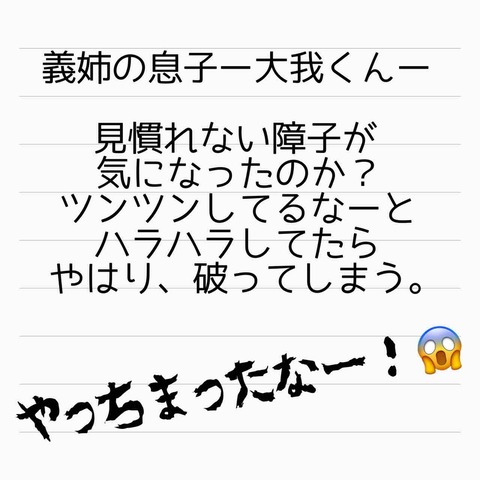 義姉の息子ー大我くんー
見慣れない障子が
気になったのか？
ツンツンしてるなーと
ハラハラしてたら
やはり、破ってしまう。
やっちまったなー！😱